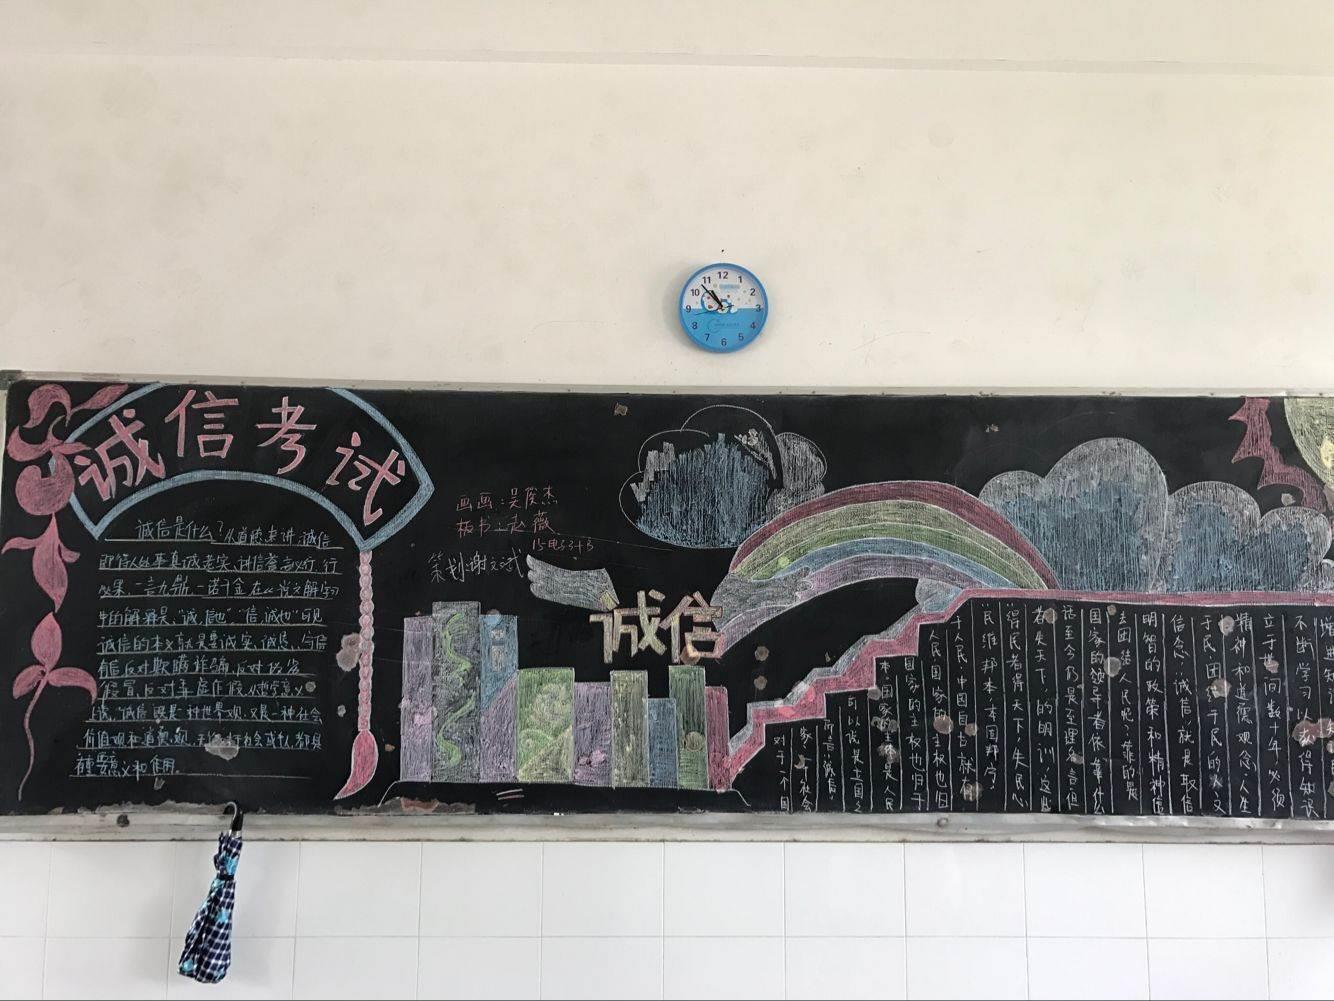 诚信考试
诚信是什么？从道德来讲，诚信
即待人处事真诚老实、讲信誉，言必行，行
必果，一言九鼎，一诺千金。在《说文解字》
中的解释是：“诚，信也”“信，诚也”可见，
诚信的本义就是要诚实、诚恳、守信
有信，反对欺瞒诈骗，反对伪劣
假冒，反对弄虚作假
诚信既是一种世界观，又是一种社会
价值观和道德观，无论对社会或个人，都具
重要意义和作用。
画画：吴俊杰
板书：赵薇
15电子3+3
策划：谢文斌
诚信
12
1
2
3
4
5
6
7
8
9
10
11
不断学习以求得知识
立于世间数年，必须
精神和道德观念，人生
于民，团结于民的义
信念，诚信就是取信
明智的政策和精神信
去团结人民呢？靠的是
国家的领导者依靠什么
话至今仍是至理名言，但
者失天下，的明训，这些
得民者得天下，失民心
民维邦本，本固邦宁，
于人民，中国自古就有
人民，国家的主权也归
国家的主权也归于
本，国家的主体是人民
可以说是立国之
所言，诚信，
家，一个社会
对于一个国